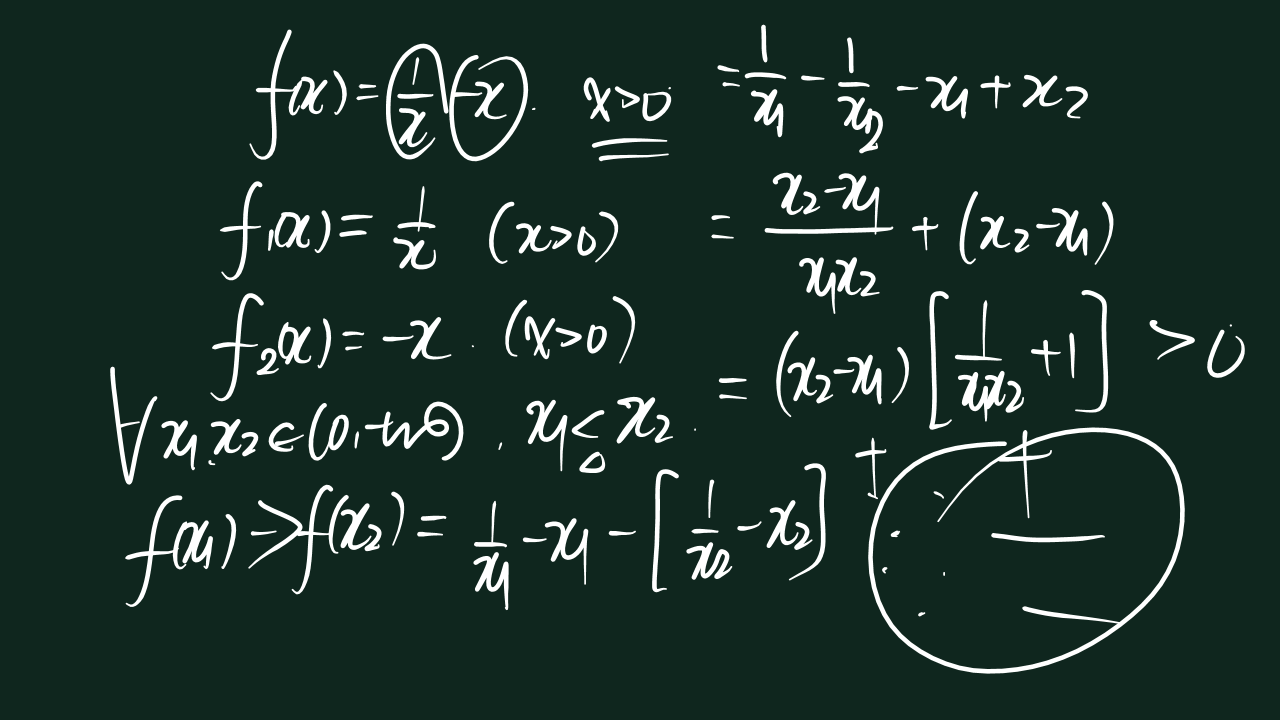 f(x) = 1/x - x . x>0
f₁(x) = 1/x (x>0)
f₂(x) = -x . (x>0)
∀ x₁, x₂ ∈ (0, +∞), x₁ < x₂ .
f(x₁) -> f(x₂) = 1/x₁ - x₁ - [1/x₂ - x₂]
= 1/x₁ - 1/x₂ - x₁ + x₂
= (x₂-x₁)/(x₁x₂) + (x₂-x₁)
= (x₂-x₁) [1/(x₁x₂) + 1] > 0
+ +